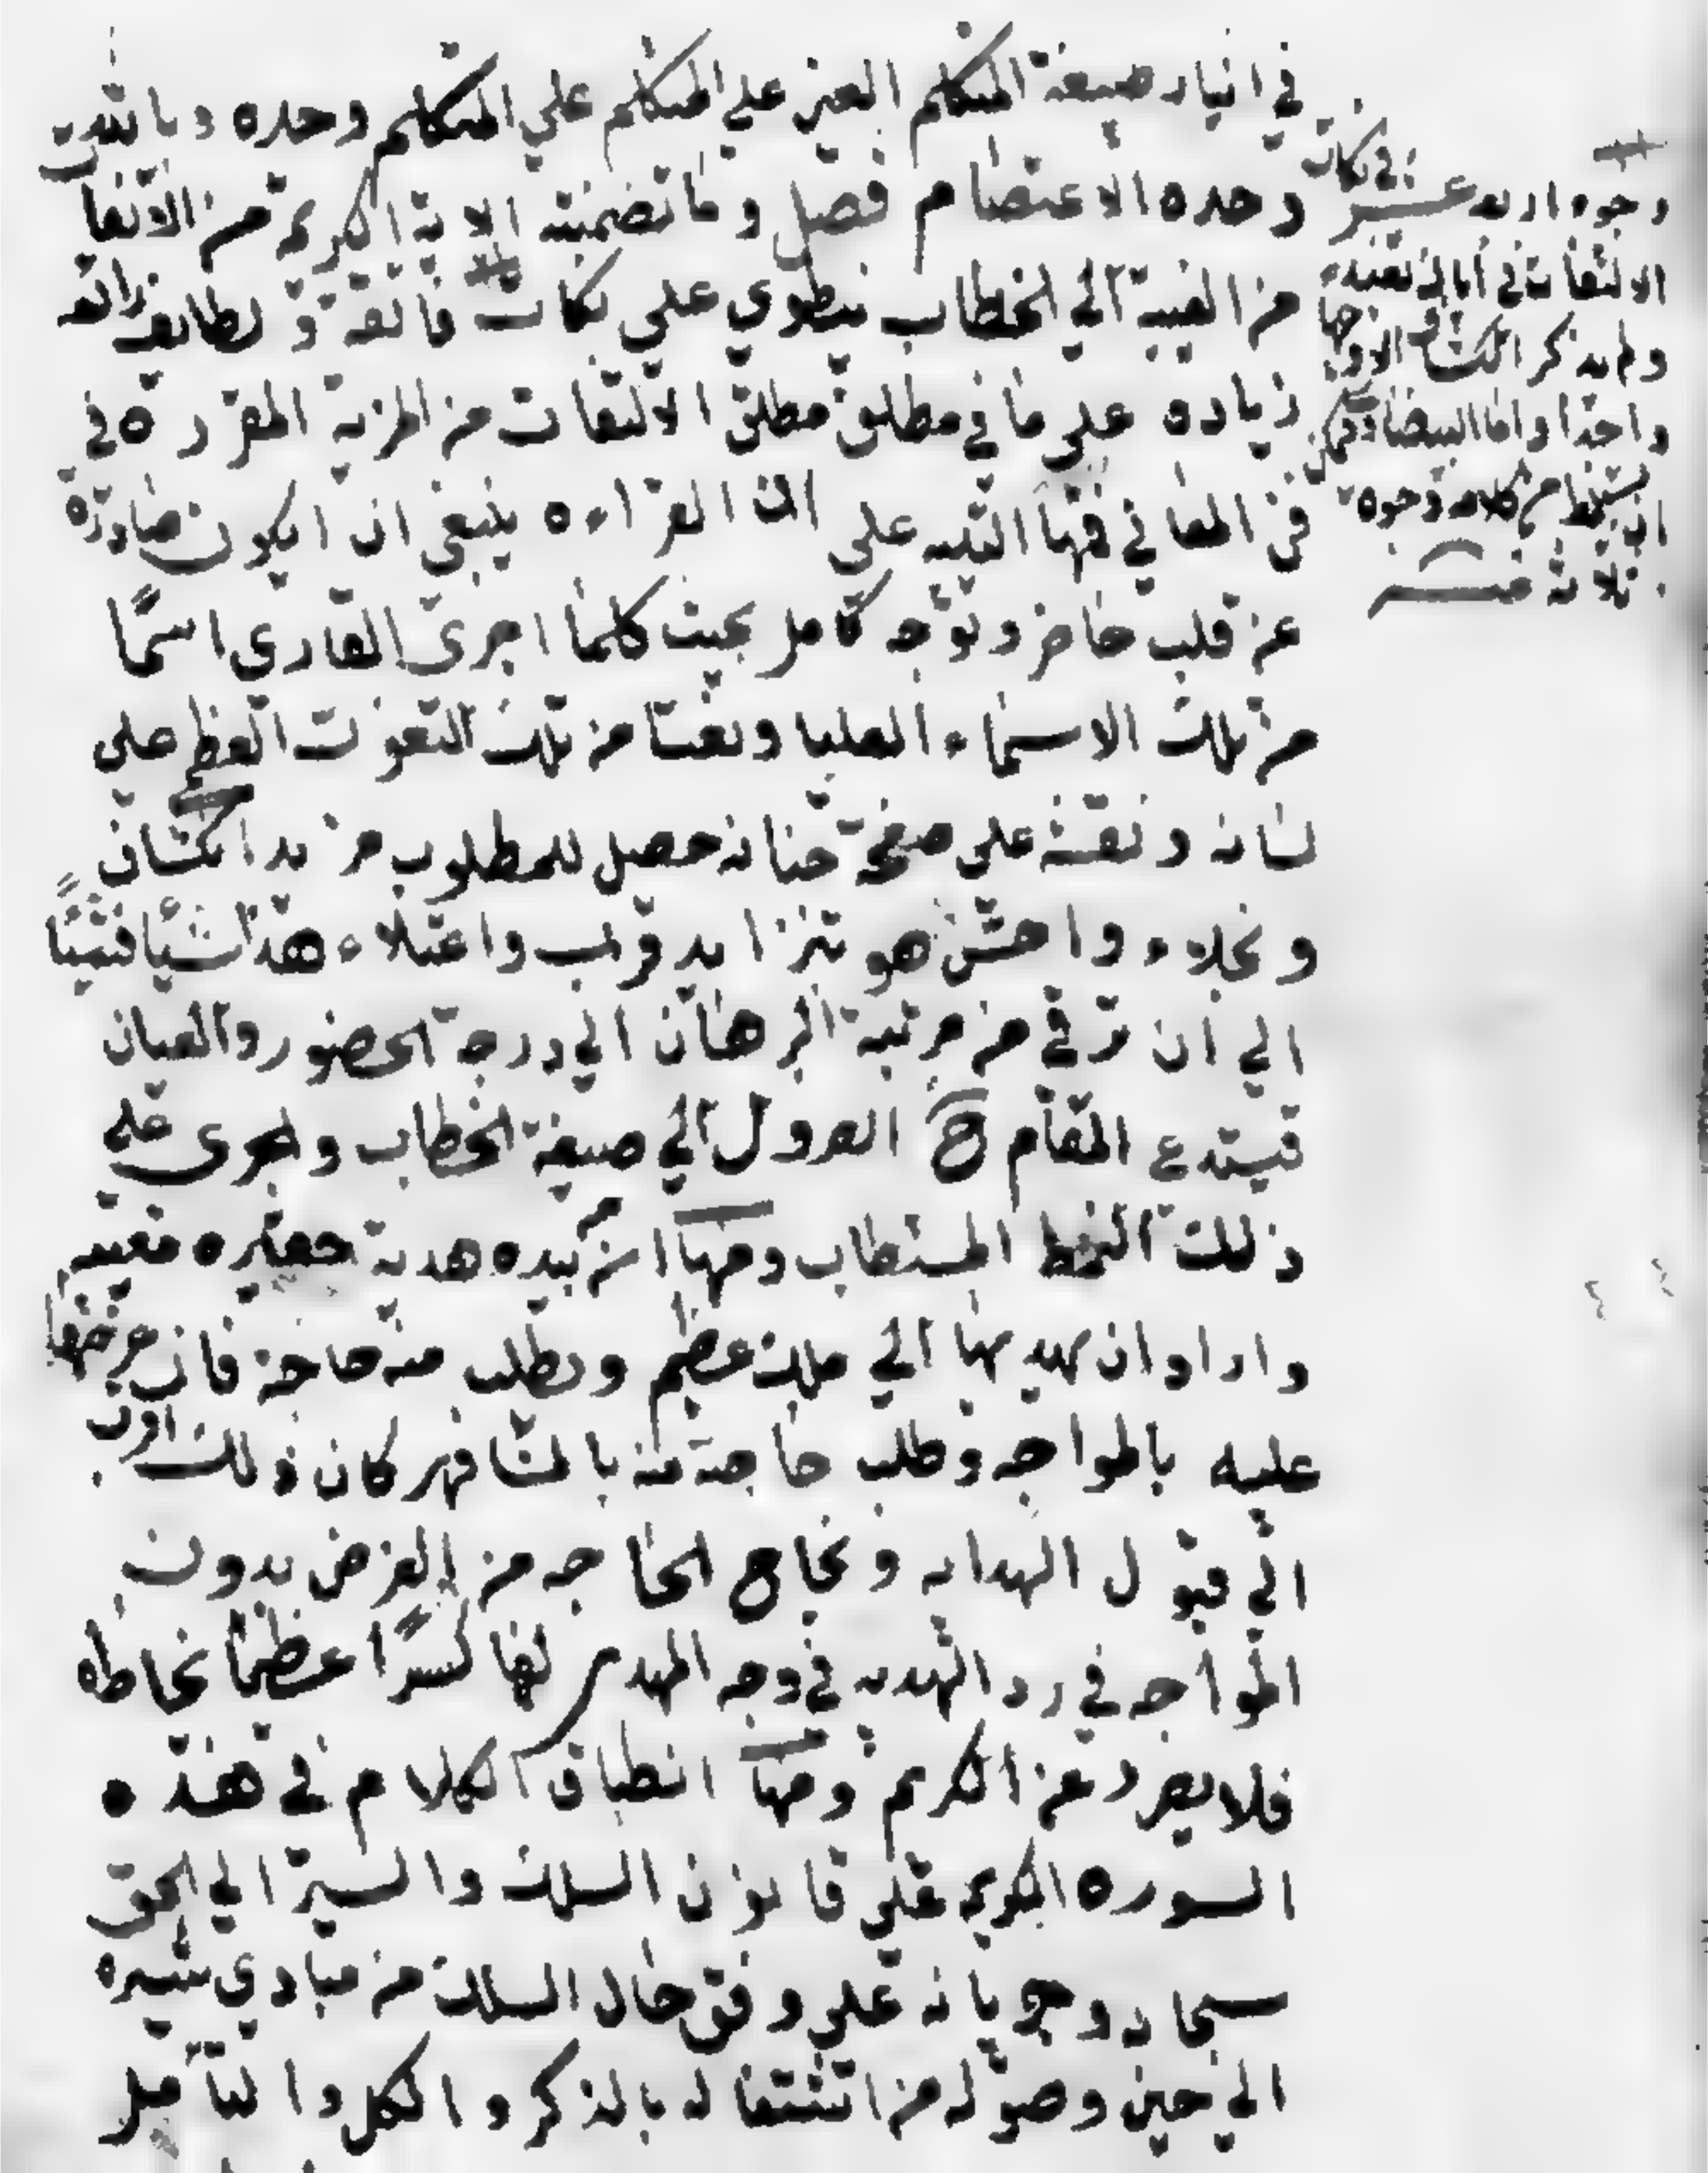 في ايثار صيغة المتكلم الغير علي المتكلم علي المتكلم وحده وبالله
وحده الاعتصام فصل وما تضمنته الاية الكريمة من الالتفا
من الغيبة الي الخطاب ينطوي علي نكات فائقة و لطايف رائقه
زياده علي ما في مطلق مطلق الالتفات من المزية المقررة في
فن المعاني فمنها التنبيه علي ان القراءه ينبغي ان يكون صادرة
عن قلب حاضر وتوجه كامل بحيث كلما اجري القاري اسمًا
من تلك الاسماء العليا ونعتا من تلك النعوت العظمي علي
لسانه ونقشه علي صفحة جنانه حصل للمطلوب مزيد انكشاف
ونجلاء واحسن هو تنزايد قرب واعتلاء هذا شيًا فشيئًا
الي ان ترقي من مرتبة البرهان الي درجة الحضور والعيان
فيستدع المقام ح العدول الي صيغة الخطاب والجري علي
ذلك النمط المستطاب ومنها ان من بيده هدية حقيره معيبه
واراد ان يهديها الي ملك عظيم ويطلب منه حاجة فان عرضها
عليه بالمواجه وطلب حاجته منه بالمشافهه كان ذلك اقرب
الي قبول الهدايه ونجاح الحاجه من العرض بدون
المواجه في رد الهديه في وجه المهدي لها كسرًا عظيما بخاطره
فلا يصرد عن الكريم ومنها انطباق الكلام في هذه
السوره الكريمه علي قانون السلك والسير الي الحق
سبحانه وجريانه علي وفق حال السلك من مبادي سيره
الي حين وصوله من اشتغاله بالذكر و الكل والتأمل
وجوه اربعه عشر في نكات
الالتفات في اياك نعبد
ولم يذكر الكشاف الا وجها
واحدًا واما البيضاوي فيمكن
ان يستنبط من كلامه وجوه
ثلاثة عشر